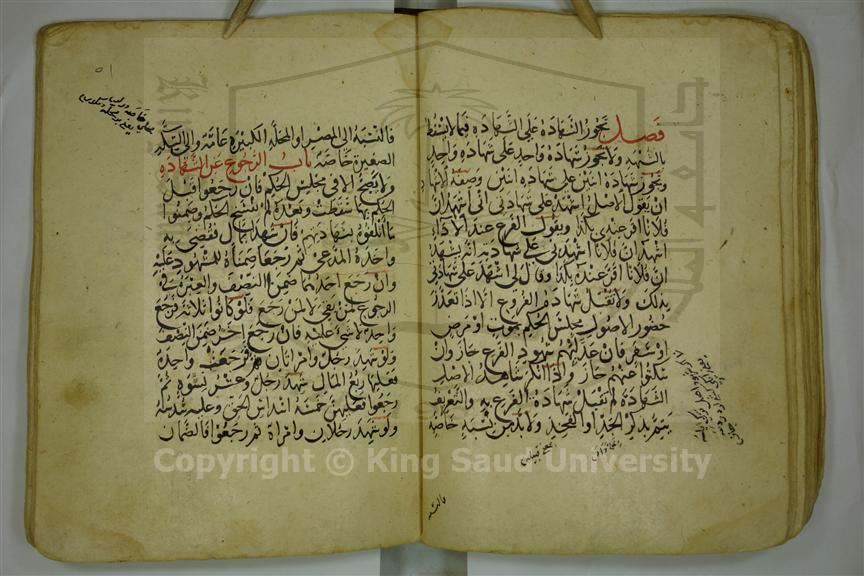 فصل تجوز الشهادة على الشهادة فيما لا يسقط
بالشبهة ولا تجوز شهادة واحد على شهادة واحد
وتجوز شهادة اثنين على شهادة اثنين وصفة الاشهاد
ان يقول الاصل اشهد على شهادتي اني اشهد ان
فلانا اقر عندي بكذا ويقول الفرع عند الاداء
اشهد ان فلانا اشهدني على شهادته انه يشهد
ان فلانا اقر عنده بكذا وقال لي اشهد على شهادتي
بذلك ولا تقبل شهادة الفروع الا اذا تعذر
حضور الاصول مجلس الحكم بموت او مرض
او سفر فان عدلهم شهود الفرع جاز وان
سكتوا عنهم جاز واذا انكر شاهد الاصل
الشهادة لم تقبل شهادة الفرع به والتعريف
يتم بذكر الجد او الفخذ ولابد من نسبة خاصة
فالنسبة
٥١
فالنسبة الى المصر او المحلة الكبيرة عامة والى السكة
الصغيرة خاصة باب الرجوع عن الشهادة
ولا يصح الا في مجلس الحكم فان رجعوا قبل
الحكم بها سقطت وبعده لم يفسخ الحكم وضمنوا
ما اتلفوه بشهادتهم فان شهدا بمال فقضى به
واخذه المدعي ثم رجعا ضمناه للمشهود عليه
وان رجع احدهما ضمن النصف والعبرة في
الرجوع لمن بقي لا لمن رجع فلو كانوا ثلاثة فرجع
واحد لا شيء عليه فان رجع اخر ضمن النصف
ولو شهد رجل وامراتان فرجعت واحدة
فعليها ربع المال شهد رجل وعشر نسوة ثم
رجعوا فعليهن خمسة اسداس الحق وعليه سدسه
ولو شهد رجلان وامراة ثم رجعوا فالضمان
Copyright © King Saud University
جامعة الملك